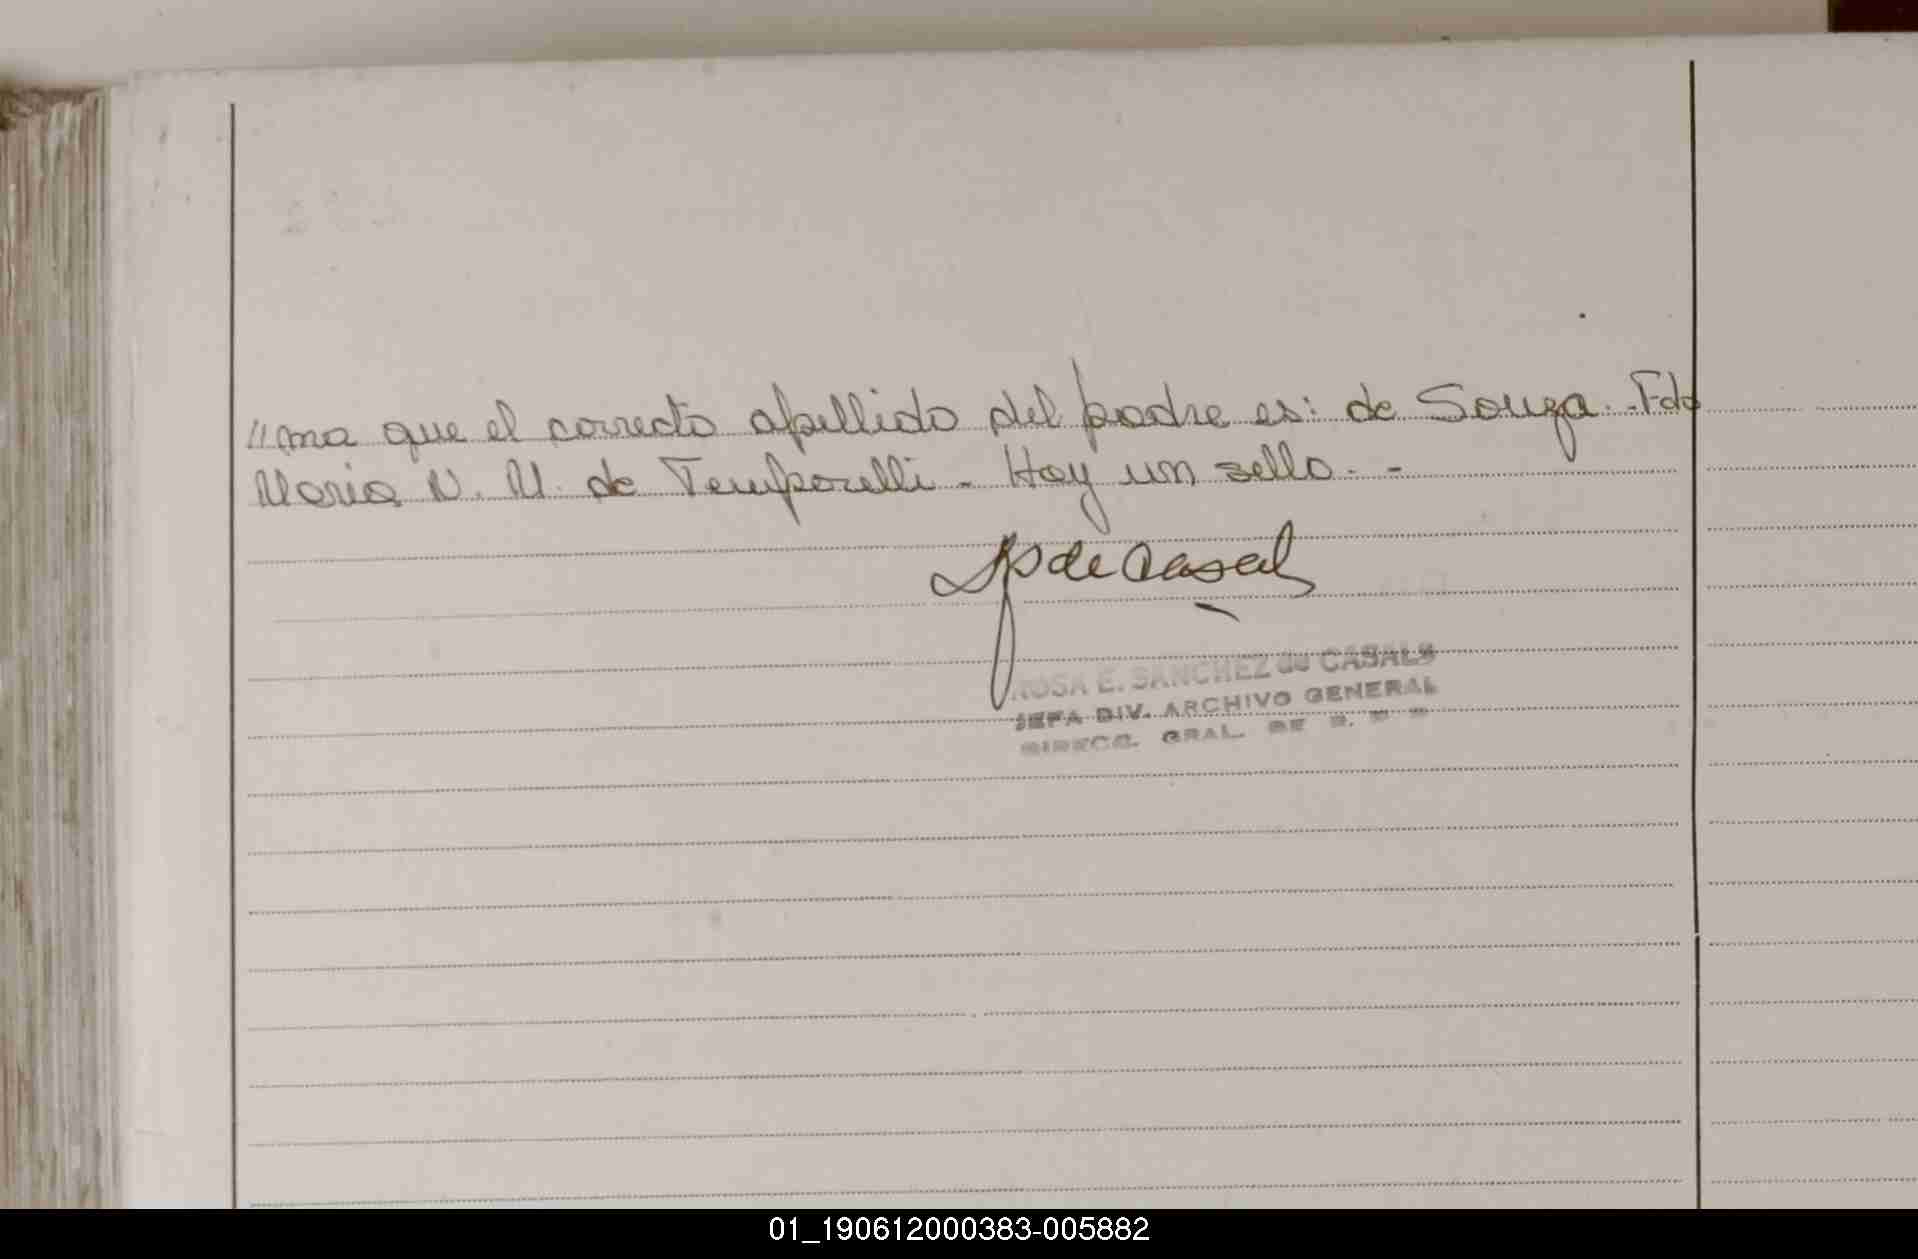 "ma que el correcto apellido del padre es: de Souza. - Fdo
Maria N. M. de Temporelli - Hay un sello. -
ROSA E. SANCHEZ de CASALS
JEFA DIV. ARCHIVO GENERAL
DIRECC. GRAL. DE
01_190612000383-005882